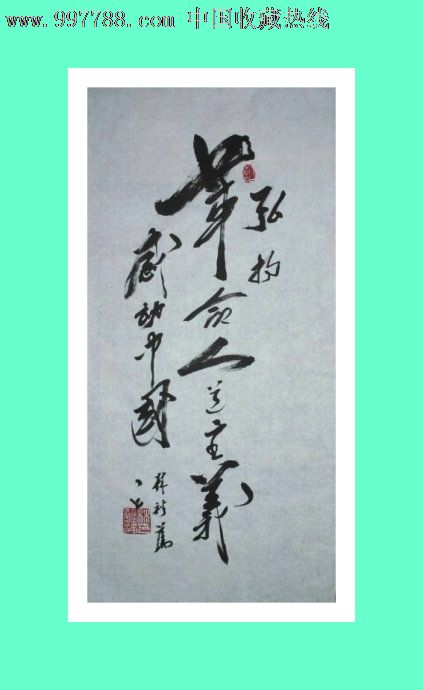 www.997788.com 中国收藏热线
弘扬
革命人道主义
感动中国